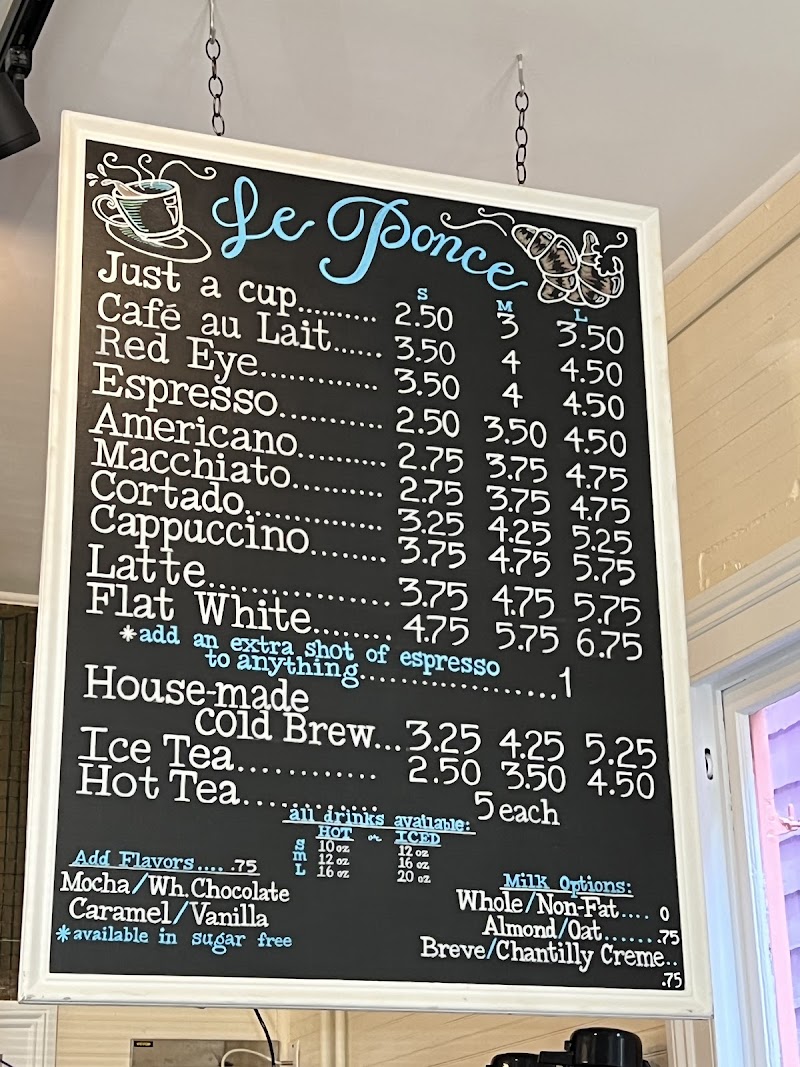 Le Ponce
S M L
Just a cup.......... 2.50 3 3.50
Café au Lait...... 3.50 4 4.50
Red Eye.............. 3.50 4 4.50
Espresso............ 2.50 3.50 4.50
Americano.......... 2.75 3.75 4.75
Macchiato.......... 2.75 3.75 4.75
Cortado............... 3.25 4.25 5.25
Cappuccino........ 3.75 4.75 5.75
Latte.................... 3.75 4.75 5.75
Flat White........ 4.75 5.75 6.75
*add an extra shot of espresso
to anything...................1
House-made
Cold Brew... 3.25 4.25 5.25
Ice Tea............. 2.50 3.50 4.50
Hot Tea............. 5 each
all drinks available:
HOT or ICED
S 10 oz 12 oz
M 12 oz 16 oz
L 16 oz 20 oz
Add Flavors.... .75
Mocha/Wh. Chocolate
Caramel/Vanilla
*available in sugar free
Milk Options:
Whole/Non-Fat.... 0
Almond/Oat.......75
Breve/Chantilly Creme..
.75